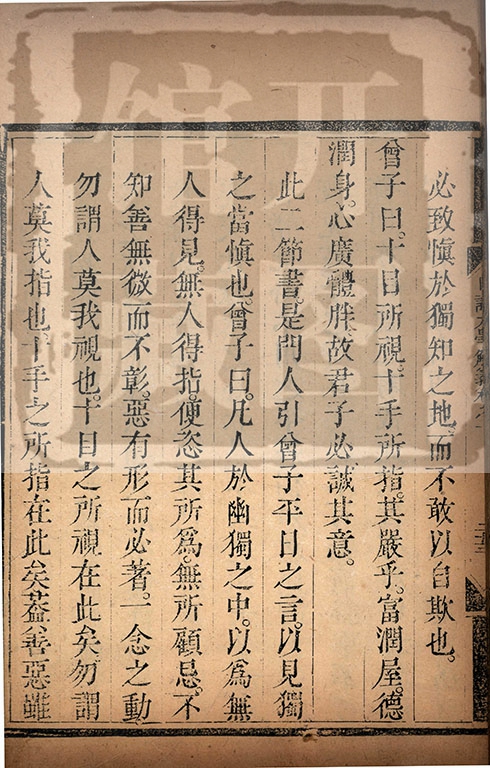 必致愼於獨知之地。而不敢以自欺也。
曾子曰。十目所視。十手所指。其嚴乎。富潤屋。德
潤身。心廣體胖。故君子必誠其意。
此二節書。是門人引曾子平日之言。以見獨
之當愼也。曾子曰。凡人於幽獨之中。以爲無
人得見。無人得指。便恣其所爲。無所顧忌。不
知善無微而不彰。惡有形而必著。一念之動
勿謂人莫我視也。十目之所視在此矣。勿謂
人莫我指也。十手之所指在此矣。葢善惡雖